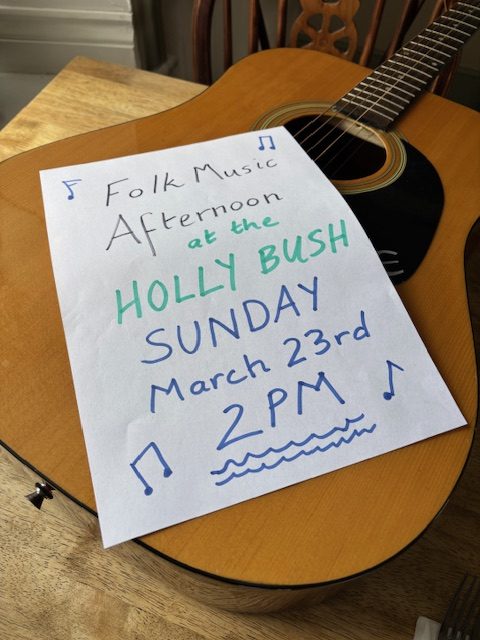 Folk Music
Afternoon
at the
HOLLY BUSH
SUNDAY
March 23rd
2PM